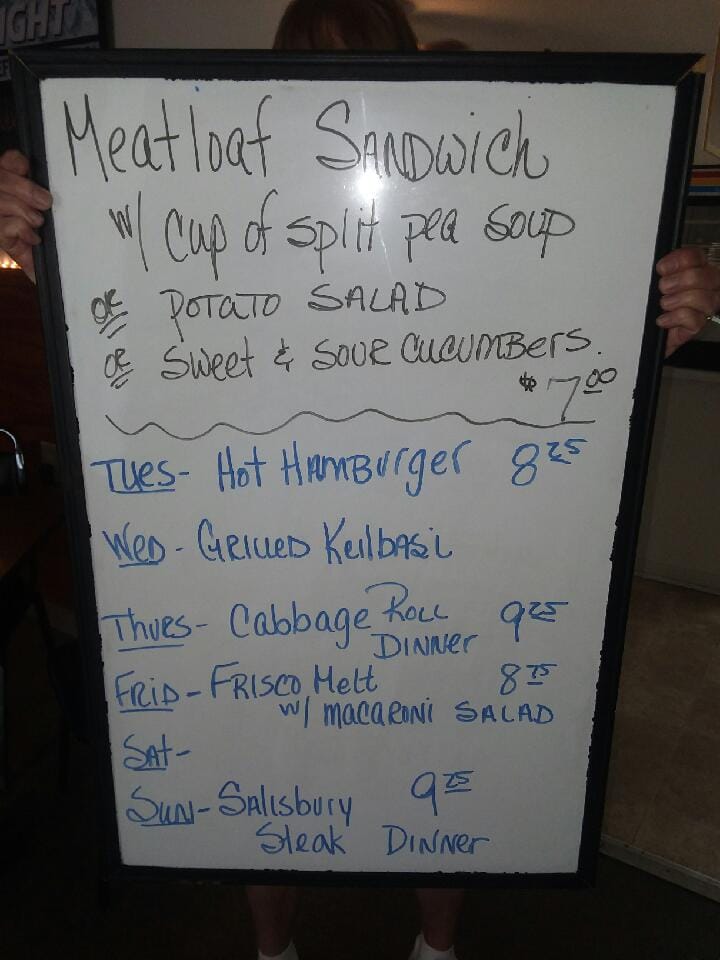 IGHT
Meatloaf SANDWICH
w/ cup of split pea soup
OR POTATO SALAD
OR SWEET & SOUR CUCUMBERS.
$7.00
TUES- Hot HAMBURGER 8 25
WED - GRILLED KeilbASi
THURS- Cabbage ROLL DINNER 9 25
FRID - FRISCO Melt 8 75
w/ MACARONI SALAD
SAT-
SUN- SALISBURY 9 25
Steak DINNER